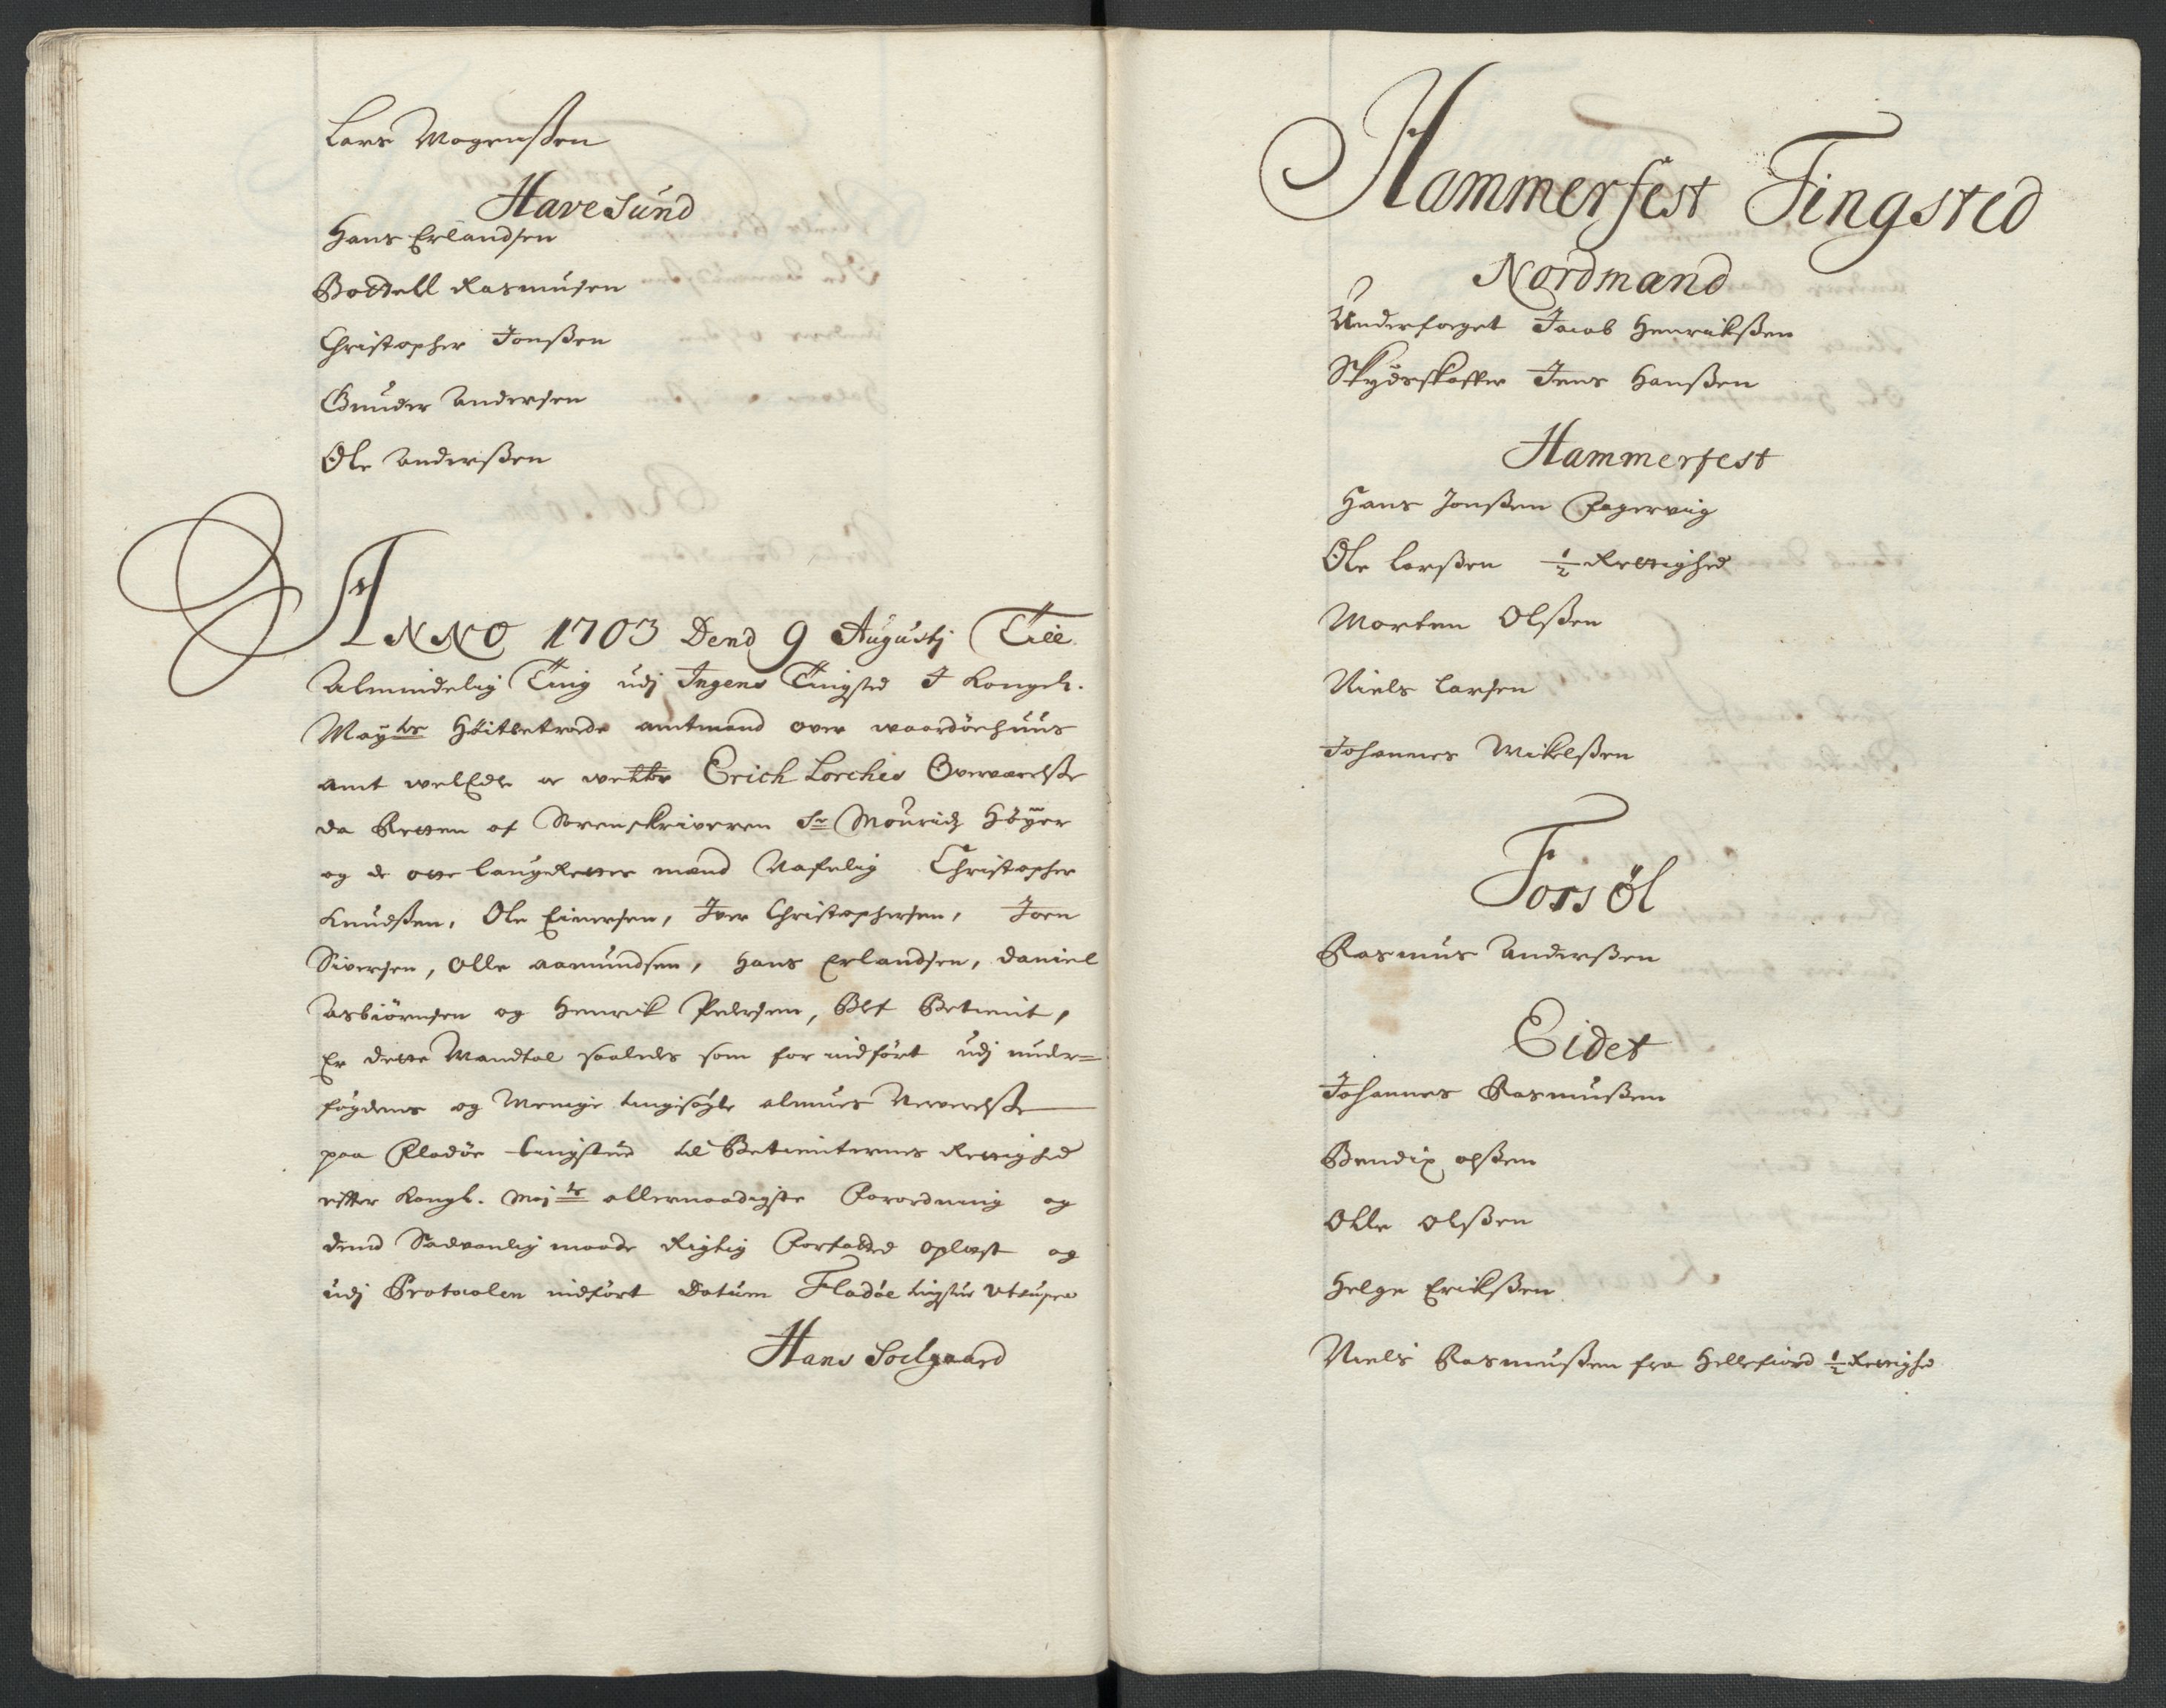 Lars Mogenßen
Havesund
Hans Erlandsen
Boddell Rasmusen
Christopher Jonßen
Gunder Andersen
Ole Anderßen
ANNO 1703 Dend 9 Augustj Till
Almindelig Ting udj Ingens Tingsted I Kongeli.
Mayts Høitbetrode amtmand over waardøehuus
amt welEdle oc Erich Lorches Overværelße
da Retten af Sorenskriveren Sr Mouridz Höyer
og de otte laugRettes mænd Nafnlig Christopher
Knudßen, Ole Einersen, Iver Christophersen, Joen
Siversen, Olle Aamundsen, Hans Erlandsen, Daniel
Asbiörnsen og Henrik Pedersen, Blef Betient,
Er dette Mandtal saaledes som for indfört udj under=
fogdens og Menige tingsøgte almues Nerverelße
paa tingsted til Betienternes Rettighed
efter Kongl. Majts allernaadigste Forordning og
dend Sædvanlig maade Rigtig Forfatted oplæst og
udj Protocolen indfört Datum Fladöe tingsted Utsupra
Hans Soelgaard
Hammerfest Tingsted
Nordmænd
Underfoeget Jacob Henrikßen
Skydsskaffer Jens Hanßen
Hammerfest
Hans Jonßen Fagerviig
Ole Larßen ½ Rettighed
Morten Olßen
Niels Larsen
Johannes Mikelßen
Forsøl
Rasmus Anderßen
Eidet
Johannes Rasmußen
Bendix olßen
Olle olßen
Helge Erikßen
Niels Rasmußen fra Hellefiord ½ Rettighed